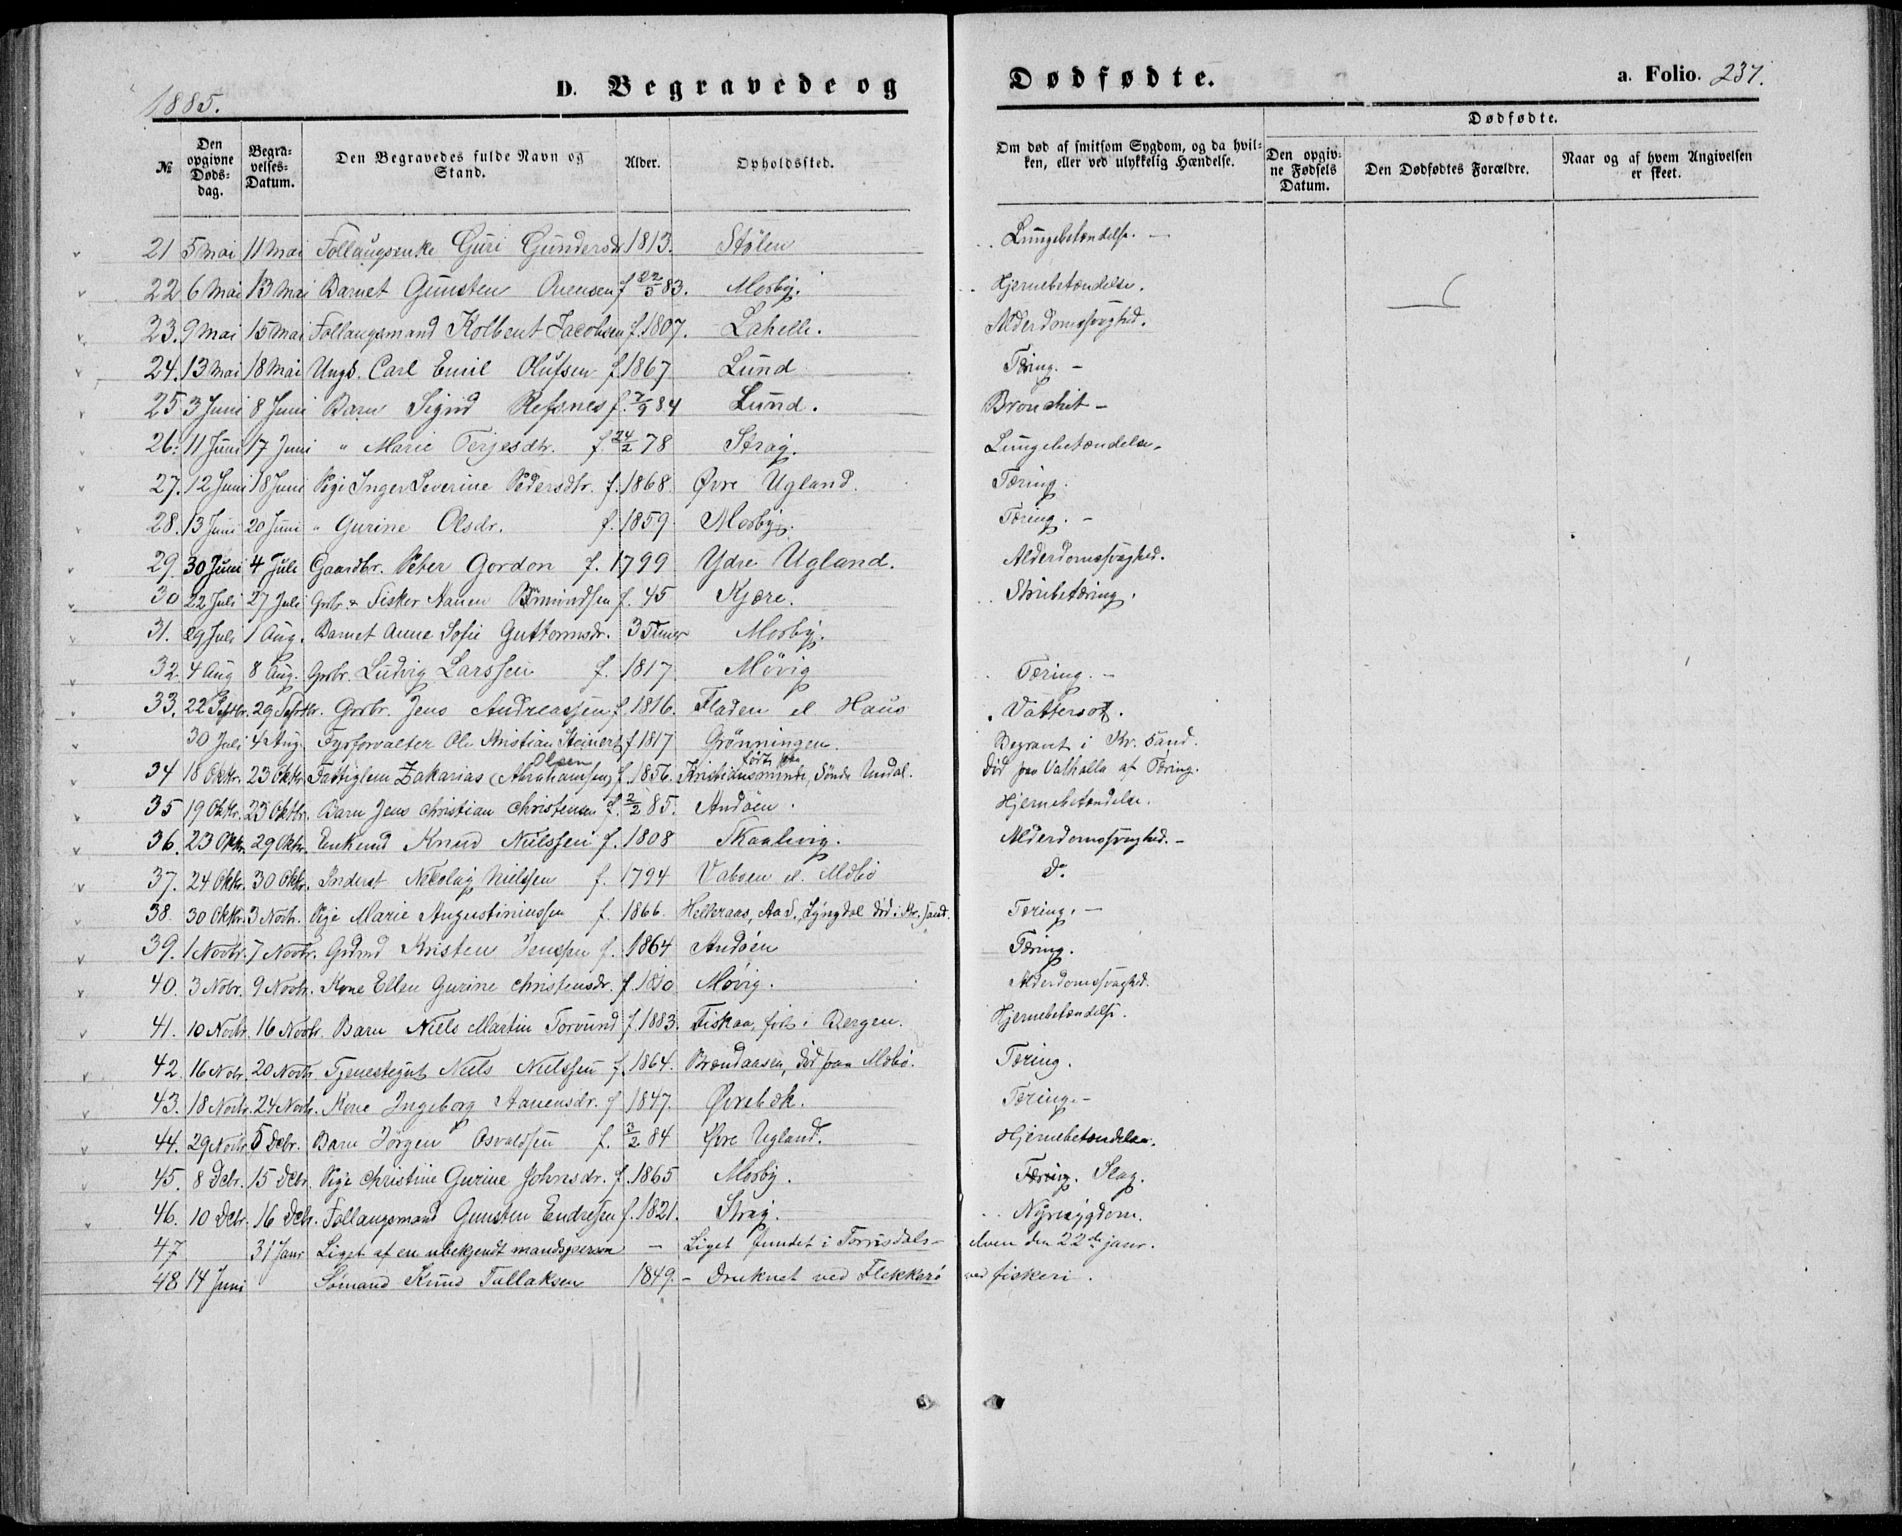 1885. D. Begravede og Dødfødte. a. Folio. 237.
№ Den opgivne Dødsdag. Begravelses-Datum. Den Begravedes fulde Navn og Stand. Alder. Opholdssted. Om død af smitsom Sygdom, og da hvilken, eller ved ulykkelig Hændelse. Dødfødte. Den opgivne Fødsels Datum. Den Dødfødtes Forældre. Naar og af hvem Angivelsen er skeet.
21 5 Mai 11 Mai Follaugsenke Guri Gundersdr 1813. Stølen Lungebetændelse. –
22 6 Mai 13 Mai Barnet Gunsten Avensen f 22/5 83. Mosby. Hjernebetændelse.
23. 9 Mai 15 Mai Follaugsmand Kolbent Jacobsen f. 1807. Lahelle. Alderdomssvaghed.
24. 13 Mai 18 Mai Ungs. Carl Emil Olufsen f 1867 Lund Tæring. –
25 3 Juni 8 Juni Barn Sigrid Refsnes f. 7/9 84 Lund. Bronchit –
26. 11 Juni 17 Juni " Marie Terjesdtr. f. 24/2 78 Strag. Lungebetændelse.
27. 12 Juni 18 Juni Pige Inger Severine Pedersdtr. f. 1868. Øvre Ugland. Tæring.
28. 13 Juni 20 Juni " Gurine Olsdr. f. 1859. Mosby. Tæring. –
29. 30 Juni 4 Juli Gaardbr. Peter Gordon f. 1799 Ydre Ugland. Alderdomssvaghed.
30 22 Juli 27 Juli Grbr. & Fisker Aanen f. 45 Kjære. Strubetæring.
31. 29 Juli 1 Aug. Barnet Anne Sofie Guttormsdr. 3 Timer Mosby.
32. 4 Aug 8 Aug. Grbr. Ludvig Larssen f. 1817 Møvig Tæring. –
33. 22 Septbr. 29 Septbr. Grbr. Jens Andreassen f. 1816. Fladen el. Haus Vattersot.
30 Juli 4 Aug. Fyrforvalter Ole Kristian Steinert f 1817 Grønningen. Begravet i Kr. sand.
34 18 Oktbr. 23 Oktbr Fattiglem Zakarias (Abrahamsen) Olsen f. 1856. født paa Kristiansminde, Søndre Undal. død paa Valhalla af Tæring.
35 19 Oktbr. 23 Oktbr. Barn Jens Christian Christensen f. 2/2 85. Andøen. Hjernebetændelse.
36. 23 Oktr. 29 Oktr. Enkemd Knud Nielssen f. 1808 Skaalevig. Alderdomssvaghed. –
37. 24 Oktr. 30 Oktr. Inderst Nikolay Nielssen f. 1794 Vaboen el. Møbø Do
38. 30 Oktbr. 3 Novbr. Pige Marie Augustiniussen f. 1866. Helleraas, Aa s., Lyngdal død i Kr. sand. Tæring. –
39. 1 Novbr. 7 Novbr. Grdmd Kristen Jenssen f. 1864 Andøen Tæring.
40. 3 Nobr. 9 Novbr. Kone Ellen Gurine Christensdr. f. 1810 Møvig. Alderdomssvaghed.
41. 10 Novbr. 16 Novbr. Barn Niels Martin Torvund f. 1883. Fiskaa, født i Bergen. Hjernebetændelse.
42. 16 Nobr. 20 Novbr Tjenestegut Niels Nielssen f. 1864. Brændaasen, død paa Møbø. Tæring.
43. 18 Novbr. 24 Novbr. Kone Ingeborg Aanensdr. f 1847. Øvrebæk. Tæring. –
44. 29 Novbr. 5 Debr. Barn Jørgen Osvaldsen f. 3/2 84 Øvre Ugland. Hjernebetændelse.
45. 8 Debr. 15 Debr. Pige Christine Gurine Johnsdr. f. 1865 Mosby. Tæring. Slag.
46. 10 Debr. 16 Debr. Follaugsmand Gunsten Endresen f. 1821. Strag. Nyresygdom.
47 31 Janr Liget af en ubekjendt mandsperson – Liget fundet i Torrisdals- elven den 22de janr.
48 14 Juni Sømand Knud Tallaksen 1849. – Druknet ved Flekkerø ved fiskeri.